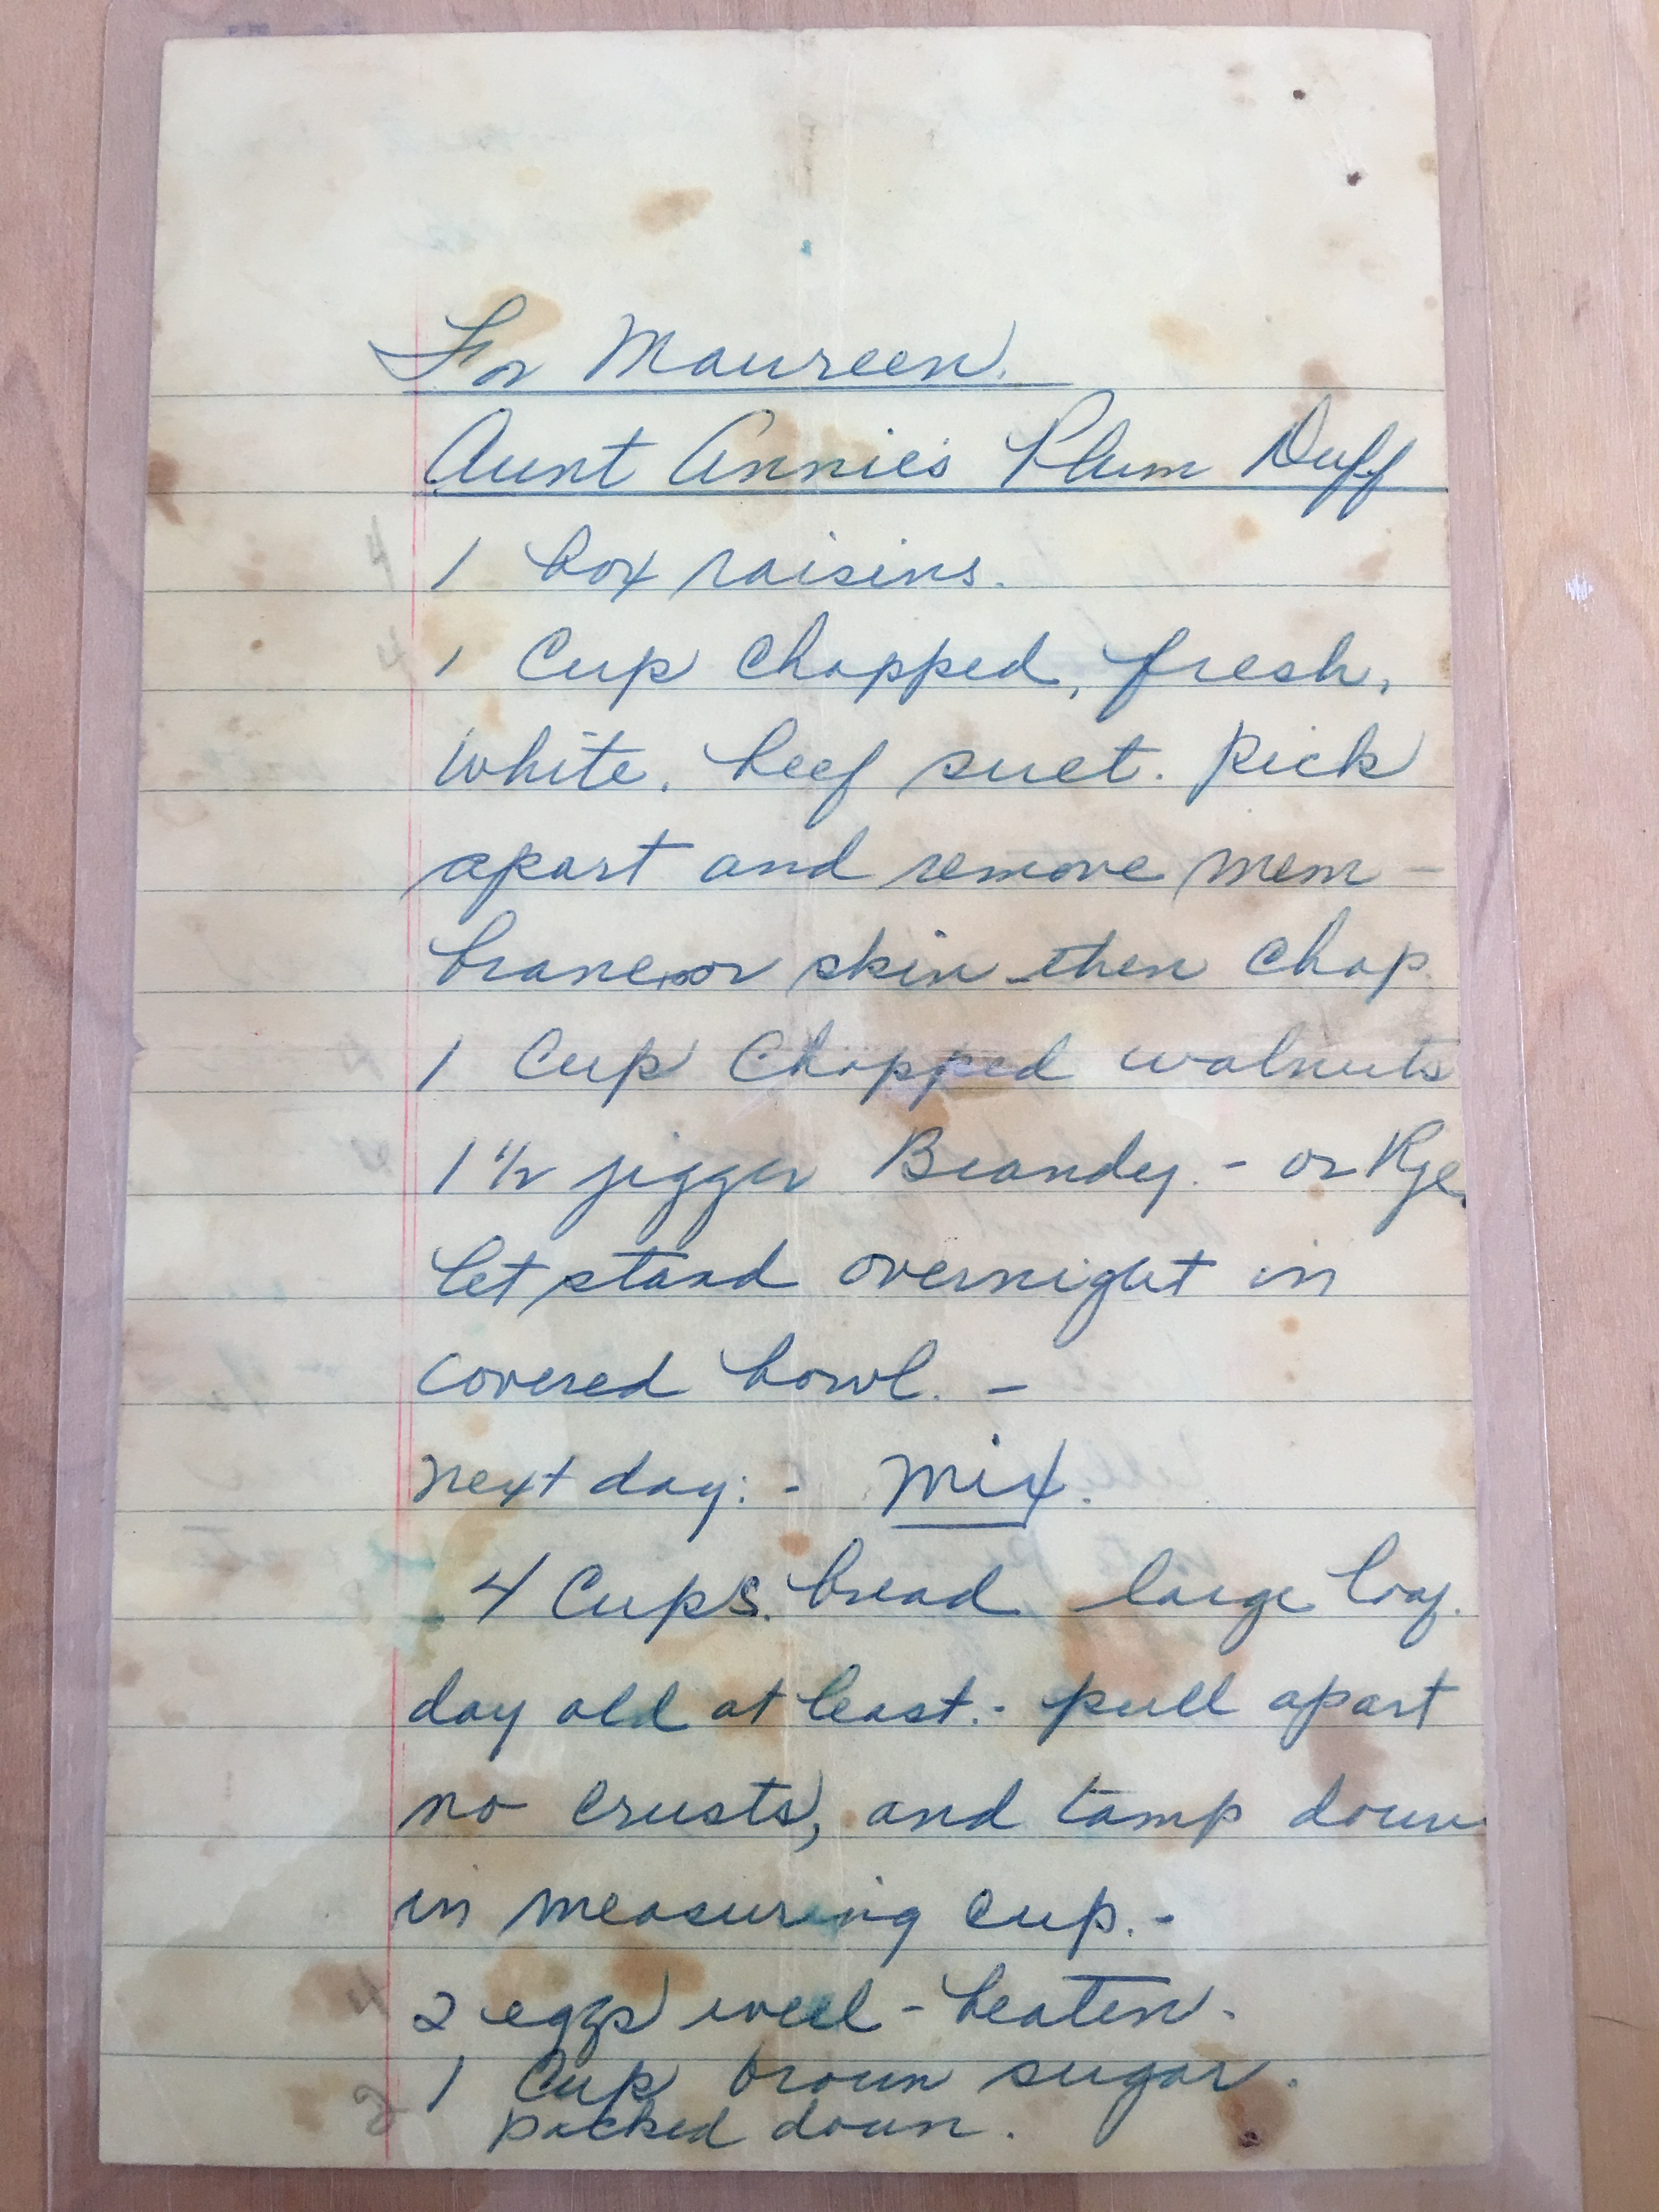 For Maureen.
Aunt Annie's Plum Duff
1 box raisins.
1 Cup Chopped, fresh,
white. beef suet. Pick
apart and remove mem-
brane or skin - then chop.
1 Cup Chopped walnuts
1 1/2 jigger Brandy. - or Rye.
Let stand overnight in
covered bowl. -
next day: - Mix.
4 Cups. bread large loaf.
day old at least. - pull apart
no crusts, and tamp down
in measuring cup. -
2 eggs well - beaten.
1 Cup brown sugar.
packed down.